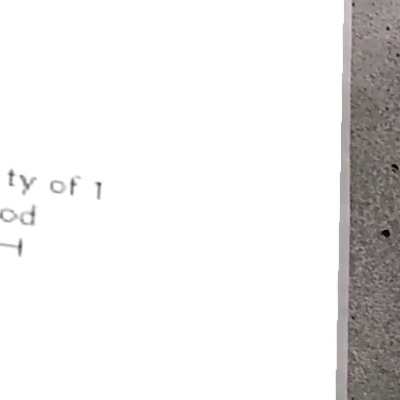 ty of 1
od